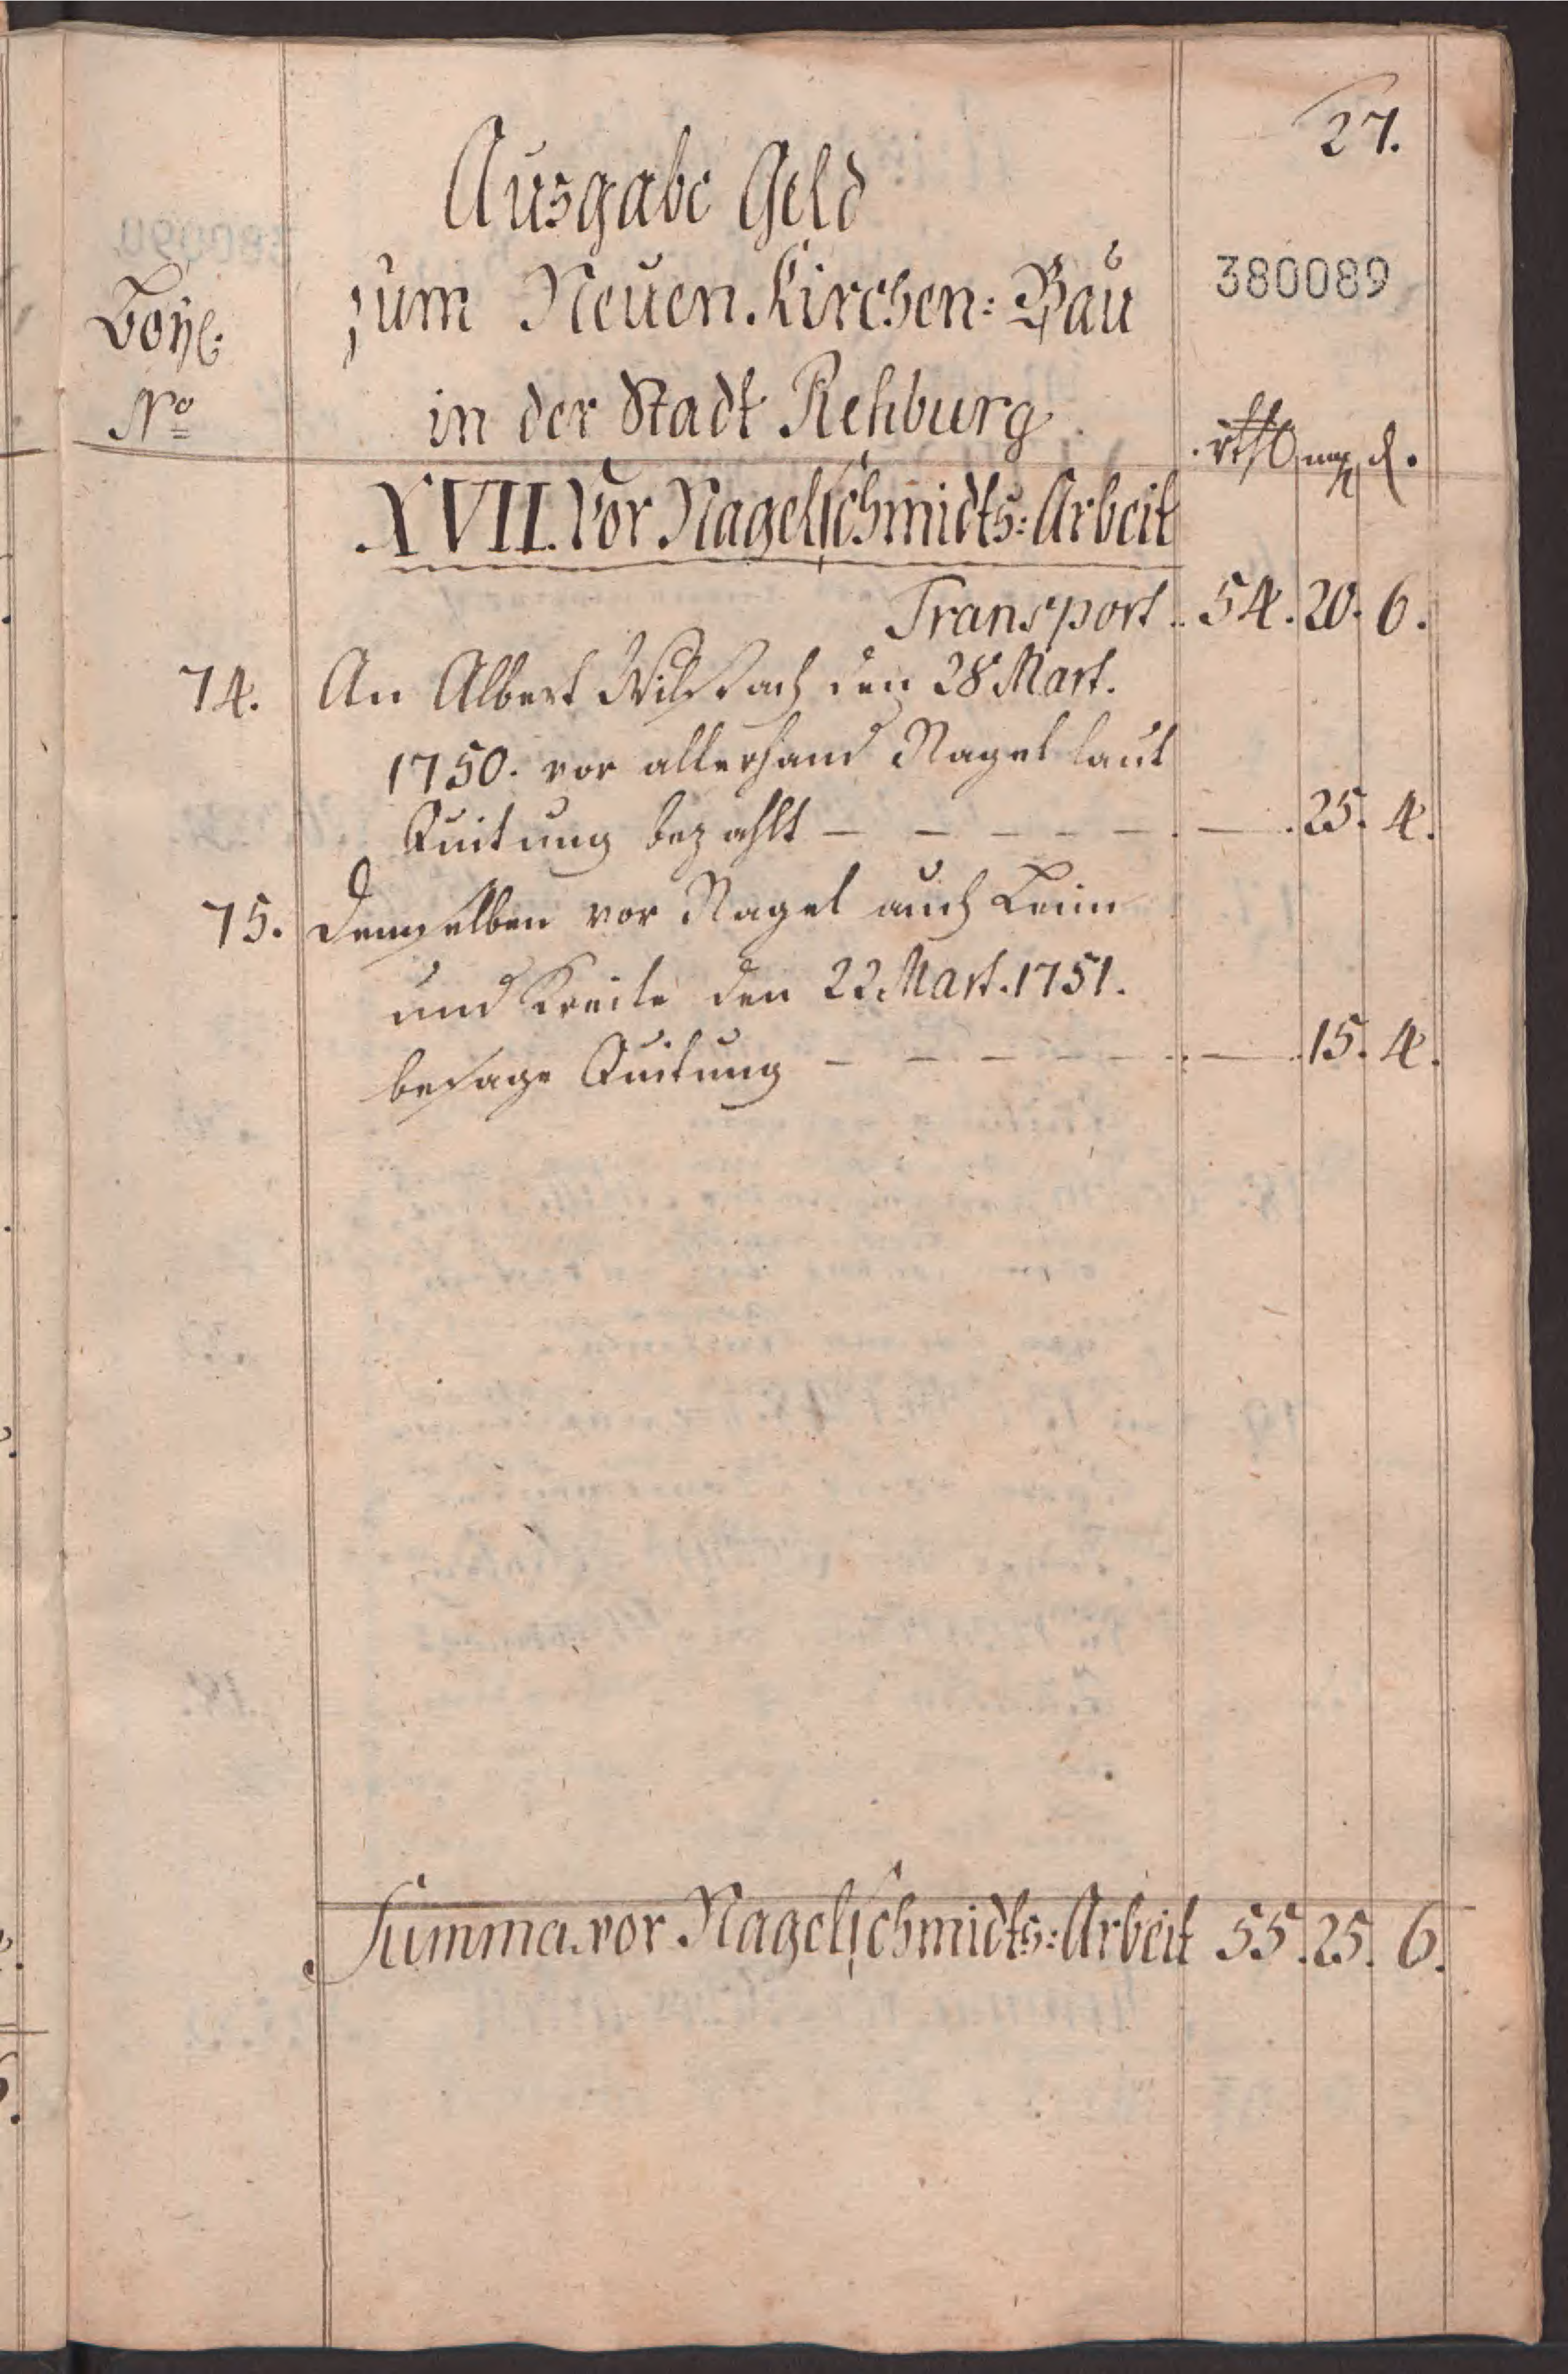 27.
Ausgabe Geld
380089
zum Neuen Kirchen: Bau
Beÿl.
No
in der Stadt Rehburg
rthl mg d.
XVII. Vor Nagelschmidts: Arbeit
Transport .. 54. 20. 6.
74. An Albert den 28 Mart.
1750. vor allerhand Nagel laut
Quitung bezahlt – – – – – — . 25. 4.
75. Demselben vor Nagel auch Leim
und Kreite den 22 Mart. 1751.
besage Quitung – – – – – — . 15. 4.
Summa vor Nagelschmidts: Arbeit 55. 25. 6.